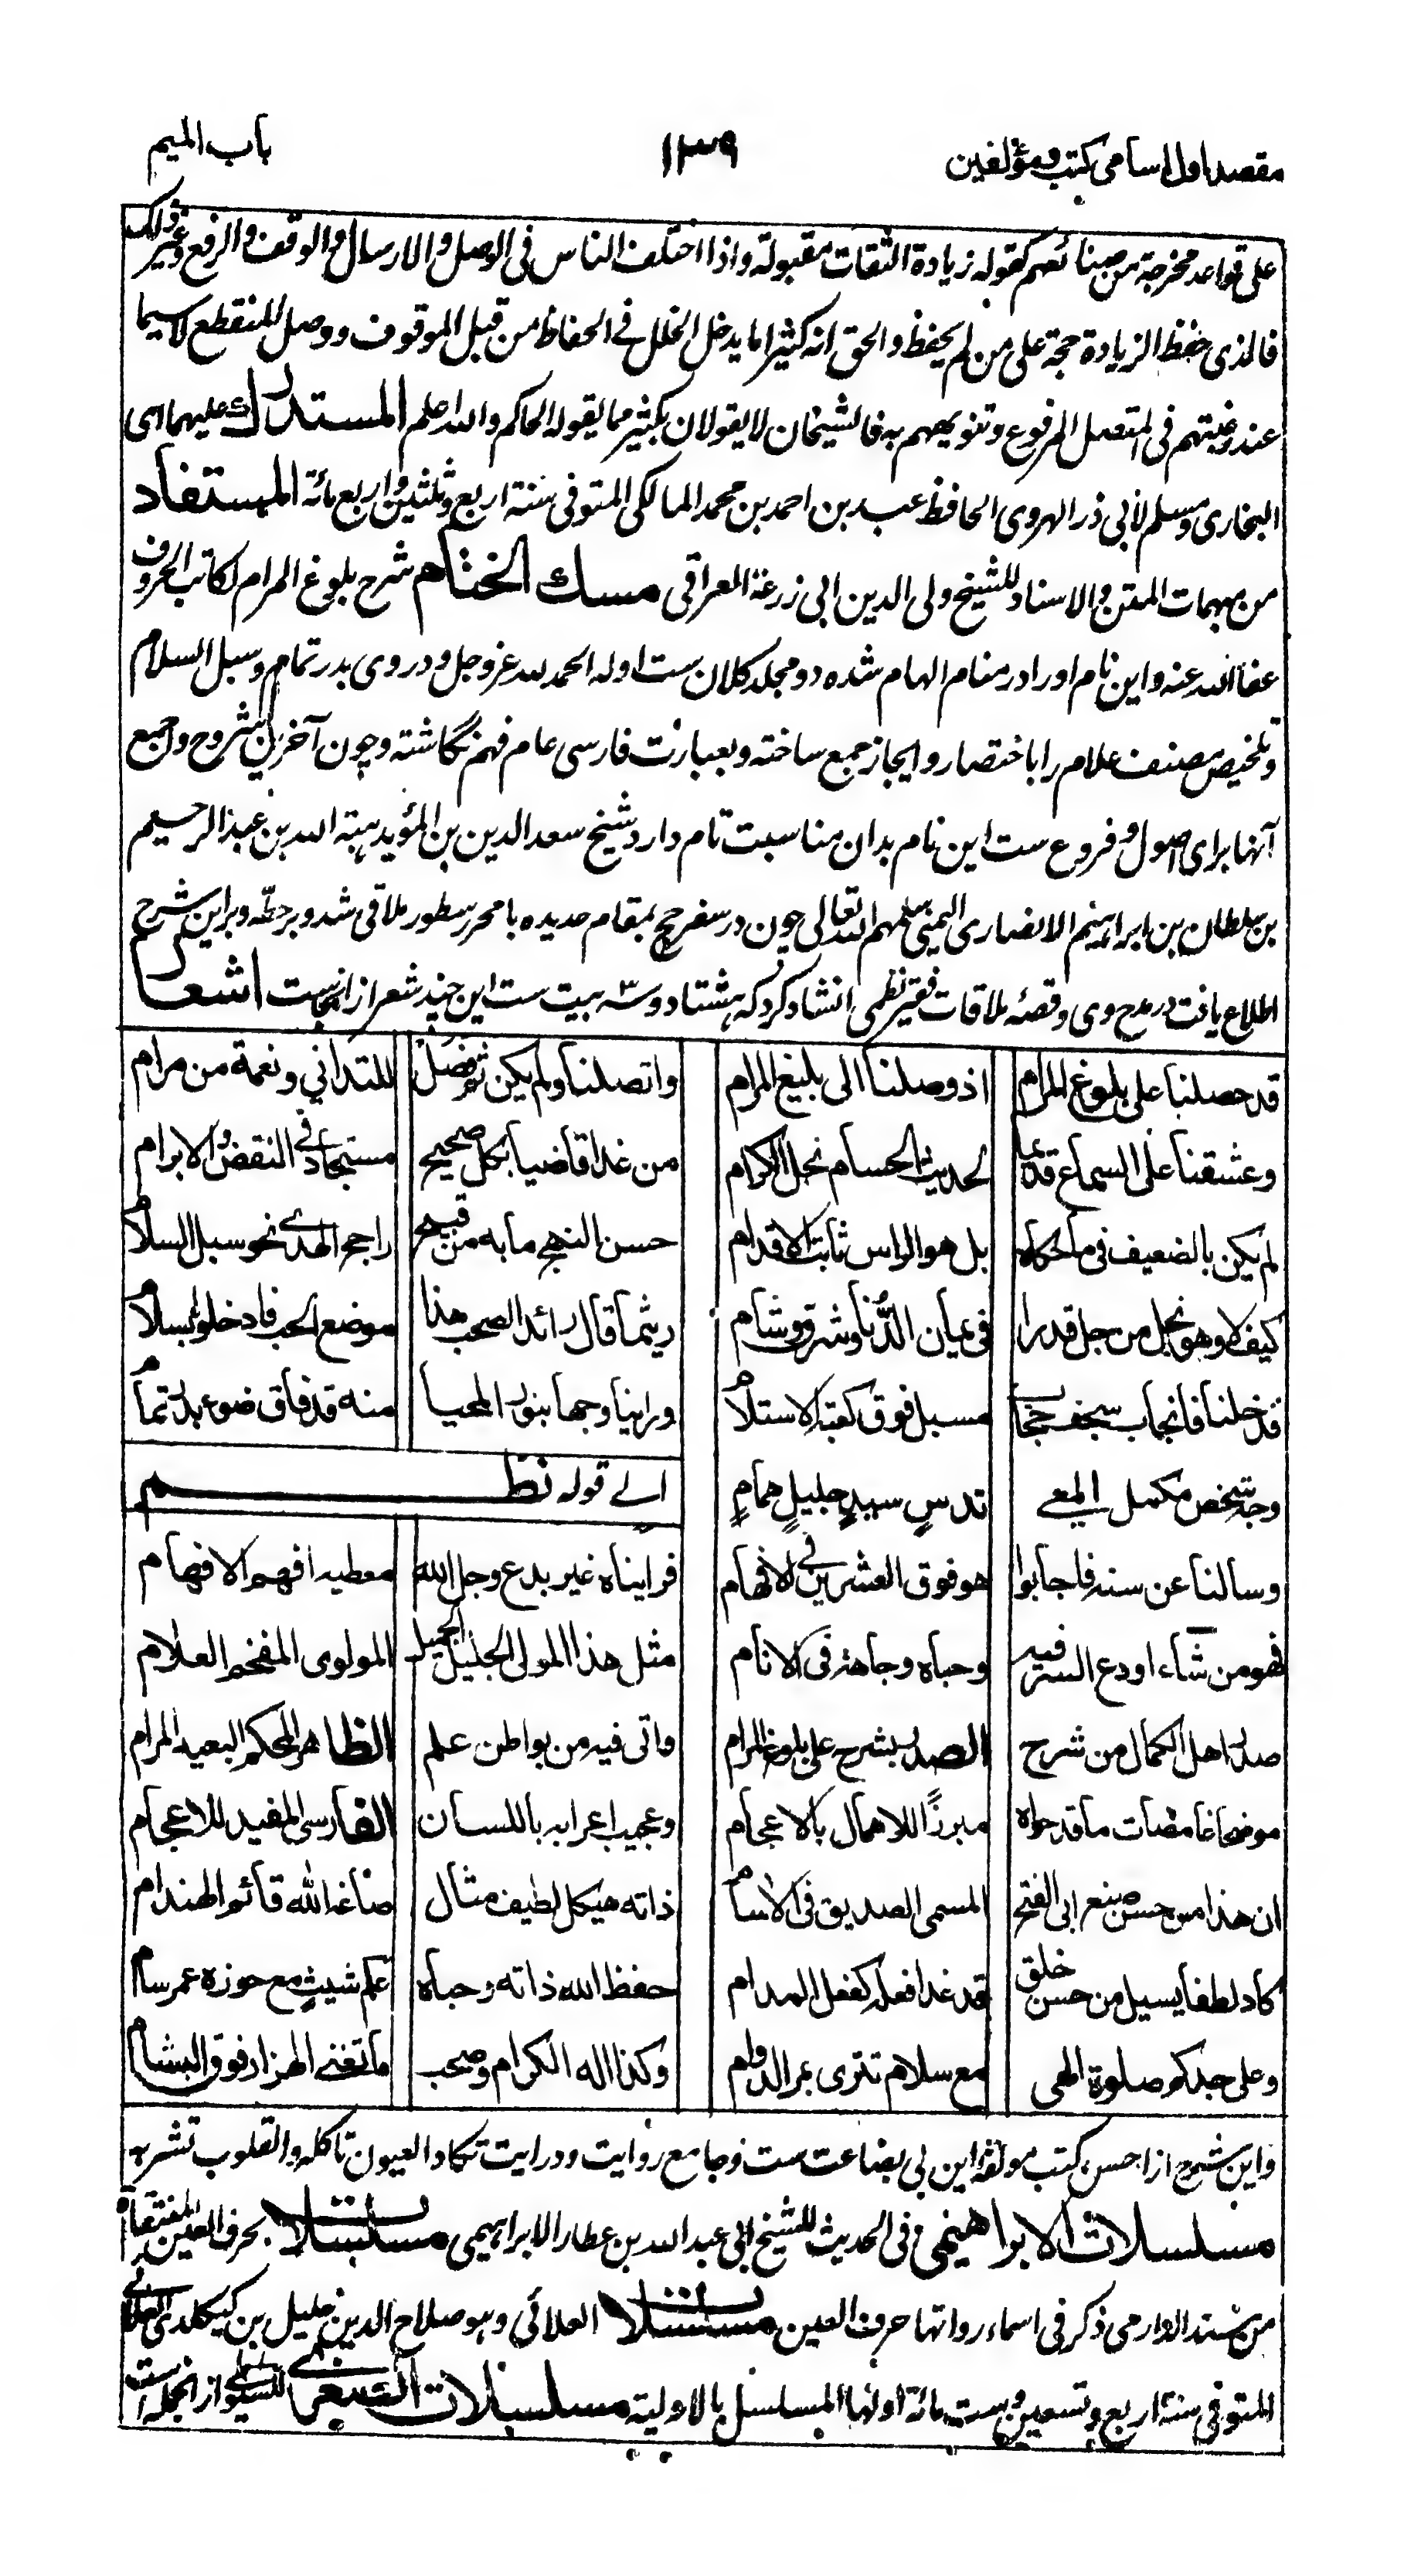 مقصد اول اسامی کتب و مؤلفین
۱۳۹
باب المیم
علی قواعد مخرجة من صنائعهم کقوله زیادة الثقات مقبولة و اذا اختلف الناس فی الوصل و الارسال و الوقف و الرفع و غیر ذلک
فالذی حفظ الزیادة حجة علی من لم یحفظ و الحق انه کثیرا ما یدخل الخلل فی الحفاظ من قبل الموقوف و وصل المنقطع لا سیما
عند رغبتهم فی المتصل المرفوع و تنویههم به فالشیخان لا یقولان بکثیر مما یقوله الحاکم و الله اعلم المستدرک علیهما ای
البخاری و مسلم لابی ذر الهروی الحافظ عبد بن احمد بن محمد المالکی المتوفی سنة اربع و ثلثین و اربع مائة المستفاد
من مبهمات المتن و الاسناد للشیخ ولی الدین ابی زرعة العراقی مسک الختام شرح بلوغ المرام لکاتب الحروف
عفا الله عنه و این نام او را در منام الهام شده دو مجلد کلان ست اوله الحمد لله عز و جل و در وی بدر تمام و سبل السلام
و تلخیص مصنف علام را باختصار و ایجاز جمع ساخته و بعبارت فارسی عام فهم نگاشته و چون آخرین شروح و اجمع
آنها برای اصول و فروع ست این نام بدان مناسبت تام دارد شیخ سعد الدین بن المؤید هبة الله بن عبد الرحیم
بن سلطان بن ابراهیم الانصاری الیمنی سلمهم الله تعالی چون در سفر حج بمقام حدیده با محرر سطور ملاقی شد و بر حطه و بر این شرح
اطلاع یافت در مدح وی و قصۀ ملاقات فقیر نظمی انشاد کرد که هشتاد و سه بیت ست این چند شعر از انجاست اشعار
قد حصلنا علی بلوغ المرام اذ وصلنا الی بلیغ المرام
وعشقنا علی السماع قدیما لحدیث الحسام نجل الکرام
لم یکن بالضعیف فی ما حکاه بل هو الراس ثابت الاقدام
کیف لا وهو نجل من جل قدرا فی عیان الدنا وشرق وشام
قد دخلنا فانجاب سجف حجاب مسبل فوق کعبة الاستلام
وجه شخص مکمل المعی ندس سید جلیل همام
وسالنا عن سنه فاجابوا هو فوق العشرین فی الافهام
فهو من شاء اودع السر فیه وحباه وجاهة فی الانام
صدر اهل الکمال من شرح الصدر بشرح علی بلوغ المرام
موضحا غامضات ما قد حواه مبرزا للاهمال بالاعجام
ان هذا من حسن صنع ابی الفتح المسمی الصدیق فی الاسام
کاد لطفا یسیل من حسن خلق قد غدا فعله کفعل المدام
وعلی جدکم صلوة الهی مع سلام تتری بمر الدوام
واتصلنا ولم یکن ثم فصل للتدانی ونعمة من مرام
من غدا قاضیا بکل صحیح مستجاد فی النقض والابرام
حسن النهج ما به من قبیح راجح الهدی نحو سبل السلام
ریثما قال رائد الصحب هذا موضع الحب فادخلوا بسلام
وراینا وجها بنور المحیا منه قد فاق ضوء بدر تمام
الی قوله نظم
فرایناه غیر بدع وجل الله معطیه افهم الافهام
مثل هذا المولی الجلیل الجمیل المولوی المفخم العلام
واتی فیه من بواطن علم الظاهر المحکم البعید المرام
وعجیب اعرابه باللسان الفارسی المفید للاعجام
ذاته هیکل لطیف مثال صاغه الله قائم الهندام
حفظ الله ذاته وحباه علم شیث مع حوزه عمر سام
وکذا اله الکرام وصحب ما تغنی الهزار فوق البشام
و این شرح از احسن کتب مولفه این بی بضاعت ست و جامع روایت و درایت تکاد العیون تاکله و القلوب تشربه
مسلسلات الابراهیمی فی الحدیث للشیخ ابی عبد الله بن عطار الابراهیمی مسلسلات بحرف العین المنتقاة
من مسند الدارمی ذکر فی اسماء رواتها حرف العین مسلسلات العلائی و هو صلاح الدین خلیل بن کیکلدی العلائی
المتوفی سنة اربع و تسعین و ست مائة اولها المسلسل بالاولیة مسلسلات الصغری للسیوطی از انجمله است